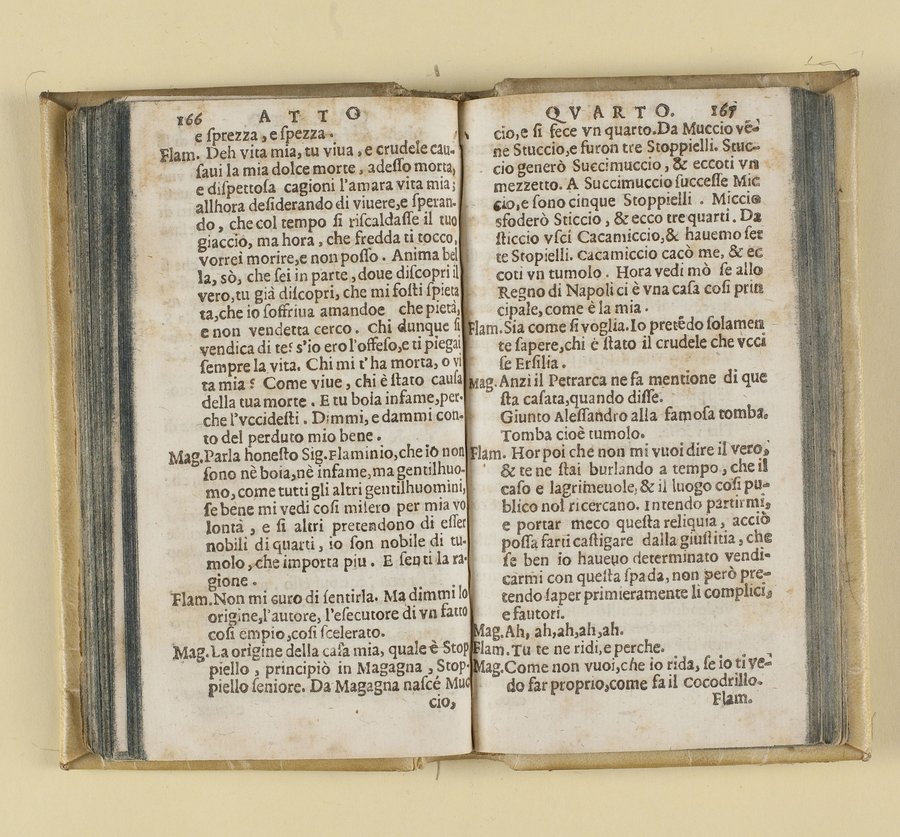 166 ATTO
e sprezza, e spezza.
Flam. Deh vita mia, tu viua, e crudele cau-
saui la mia dolce morte, adesso morta,
e dispettosa cagioni l'amara vita mia;
allhora desiderando di viuere, e speran-
do, che col tempo si riscaldasse il tuo
giaccio, ma hora, che fredda ti tocco,
vorrei morire, e non posso. Anima bel
la, sò, che sei in parte, doue discopri il
vero, tu già discopri, che mi fosti spieta
ta, che io soffriua amandoe che pietà,
e non vendetta cerco. Chi dunque si
vendica di te? s'io ero l'offeso, e ti piegai
sempre la vita. Chi mi t'ha morta, o vi
ta mia? Come viue, chi è stato causa
della tua morte. E tu boia infame, per-
che l'vccidesti. Dimmi, e dammi con-
to del perduto mio bene.
Mag. Parla honesto Sig. Flaminio, che io non
sono nè boia, nè infame, ma gentilhuo-
mo, come tutti gli altri gentilhuomini,
se bene mi vedi così misero per mia vo
lontà, e si altri pretendono di esser
nobili di quarti, io son nobile di tu-
molo, che importa piu. E senti la ra-
gione.
Flam. Non mi curo di sentirla. Ma dimmi lo
origine, l'autore, l'esecutore di vn fatto
così empio, così scelerato.
Mag. La origine della casa mia, quale è Stop
piello, principiò in Magagna, Stop-
piello seniore. Da Magagna nascé Muc
cio,
QVARTO. 167
cio, e si fece vn quarto. Da Muccio vē-
ne Stuccio, e furon tre Stoppielli. Stuc-
cio generò Succimuccio, & eccoti vn
mezzetto. A Succimuccio successe Mic
cio, e sono cinque Stoppielli. Miccio
sfoderò Sticcio, & ecco tre quarti. Da
sticcio vsci Cacamiccio, & hauemo set
te Stopielli. Cacamiccio cacò me, & ec
coti vn tumolo. Hora vedi mò se allo
Regno di Napoli ci è vna casa così prin
cipale, come è la mia.
Flam. Sia come si voglia. Io pretēdo solamen
te sapere, chi è stato il crudele che vcci
se Ersilia.
Mag. Anzi il Petrarca ne fa mentione di que
sta casata, quando disse.
Giunto Alessandro alla famosa tomba.
Tomba cioè tumolo.
Flam. Hor poi che non mi vuoi dire il vero,
& te ne stai burlando a tempo, che il
caso e lagrimeuole, & il luogo così pu-
blico nol ricercano. Intendo partirmi,
e portar meco questa reliquia, acciò
possa farti castigare dalla giustitia, che
se ben io haueuo determinato vendi-
carmi con questa spada, non però pre-
tendo saper primieramente li complici,
e fautori.
Mag. Ah, ah, ah, ah, ah.
Flam. Tu te ne ridi, e perche.
Mag. Come non vuoi, che io rida, se io ti ve-
do far proprio, come fa il Cocodrillo.
Flam.